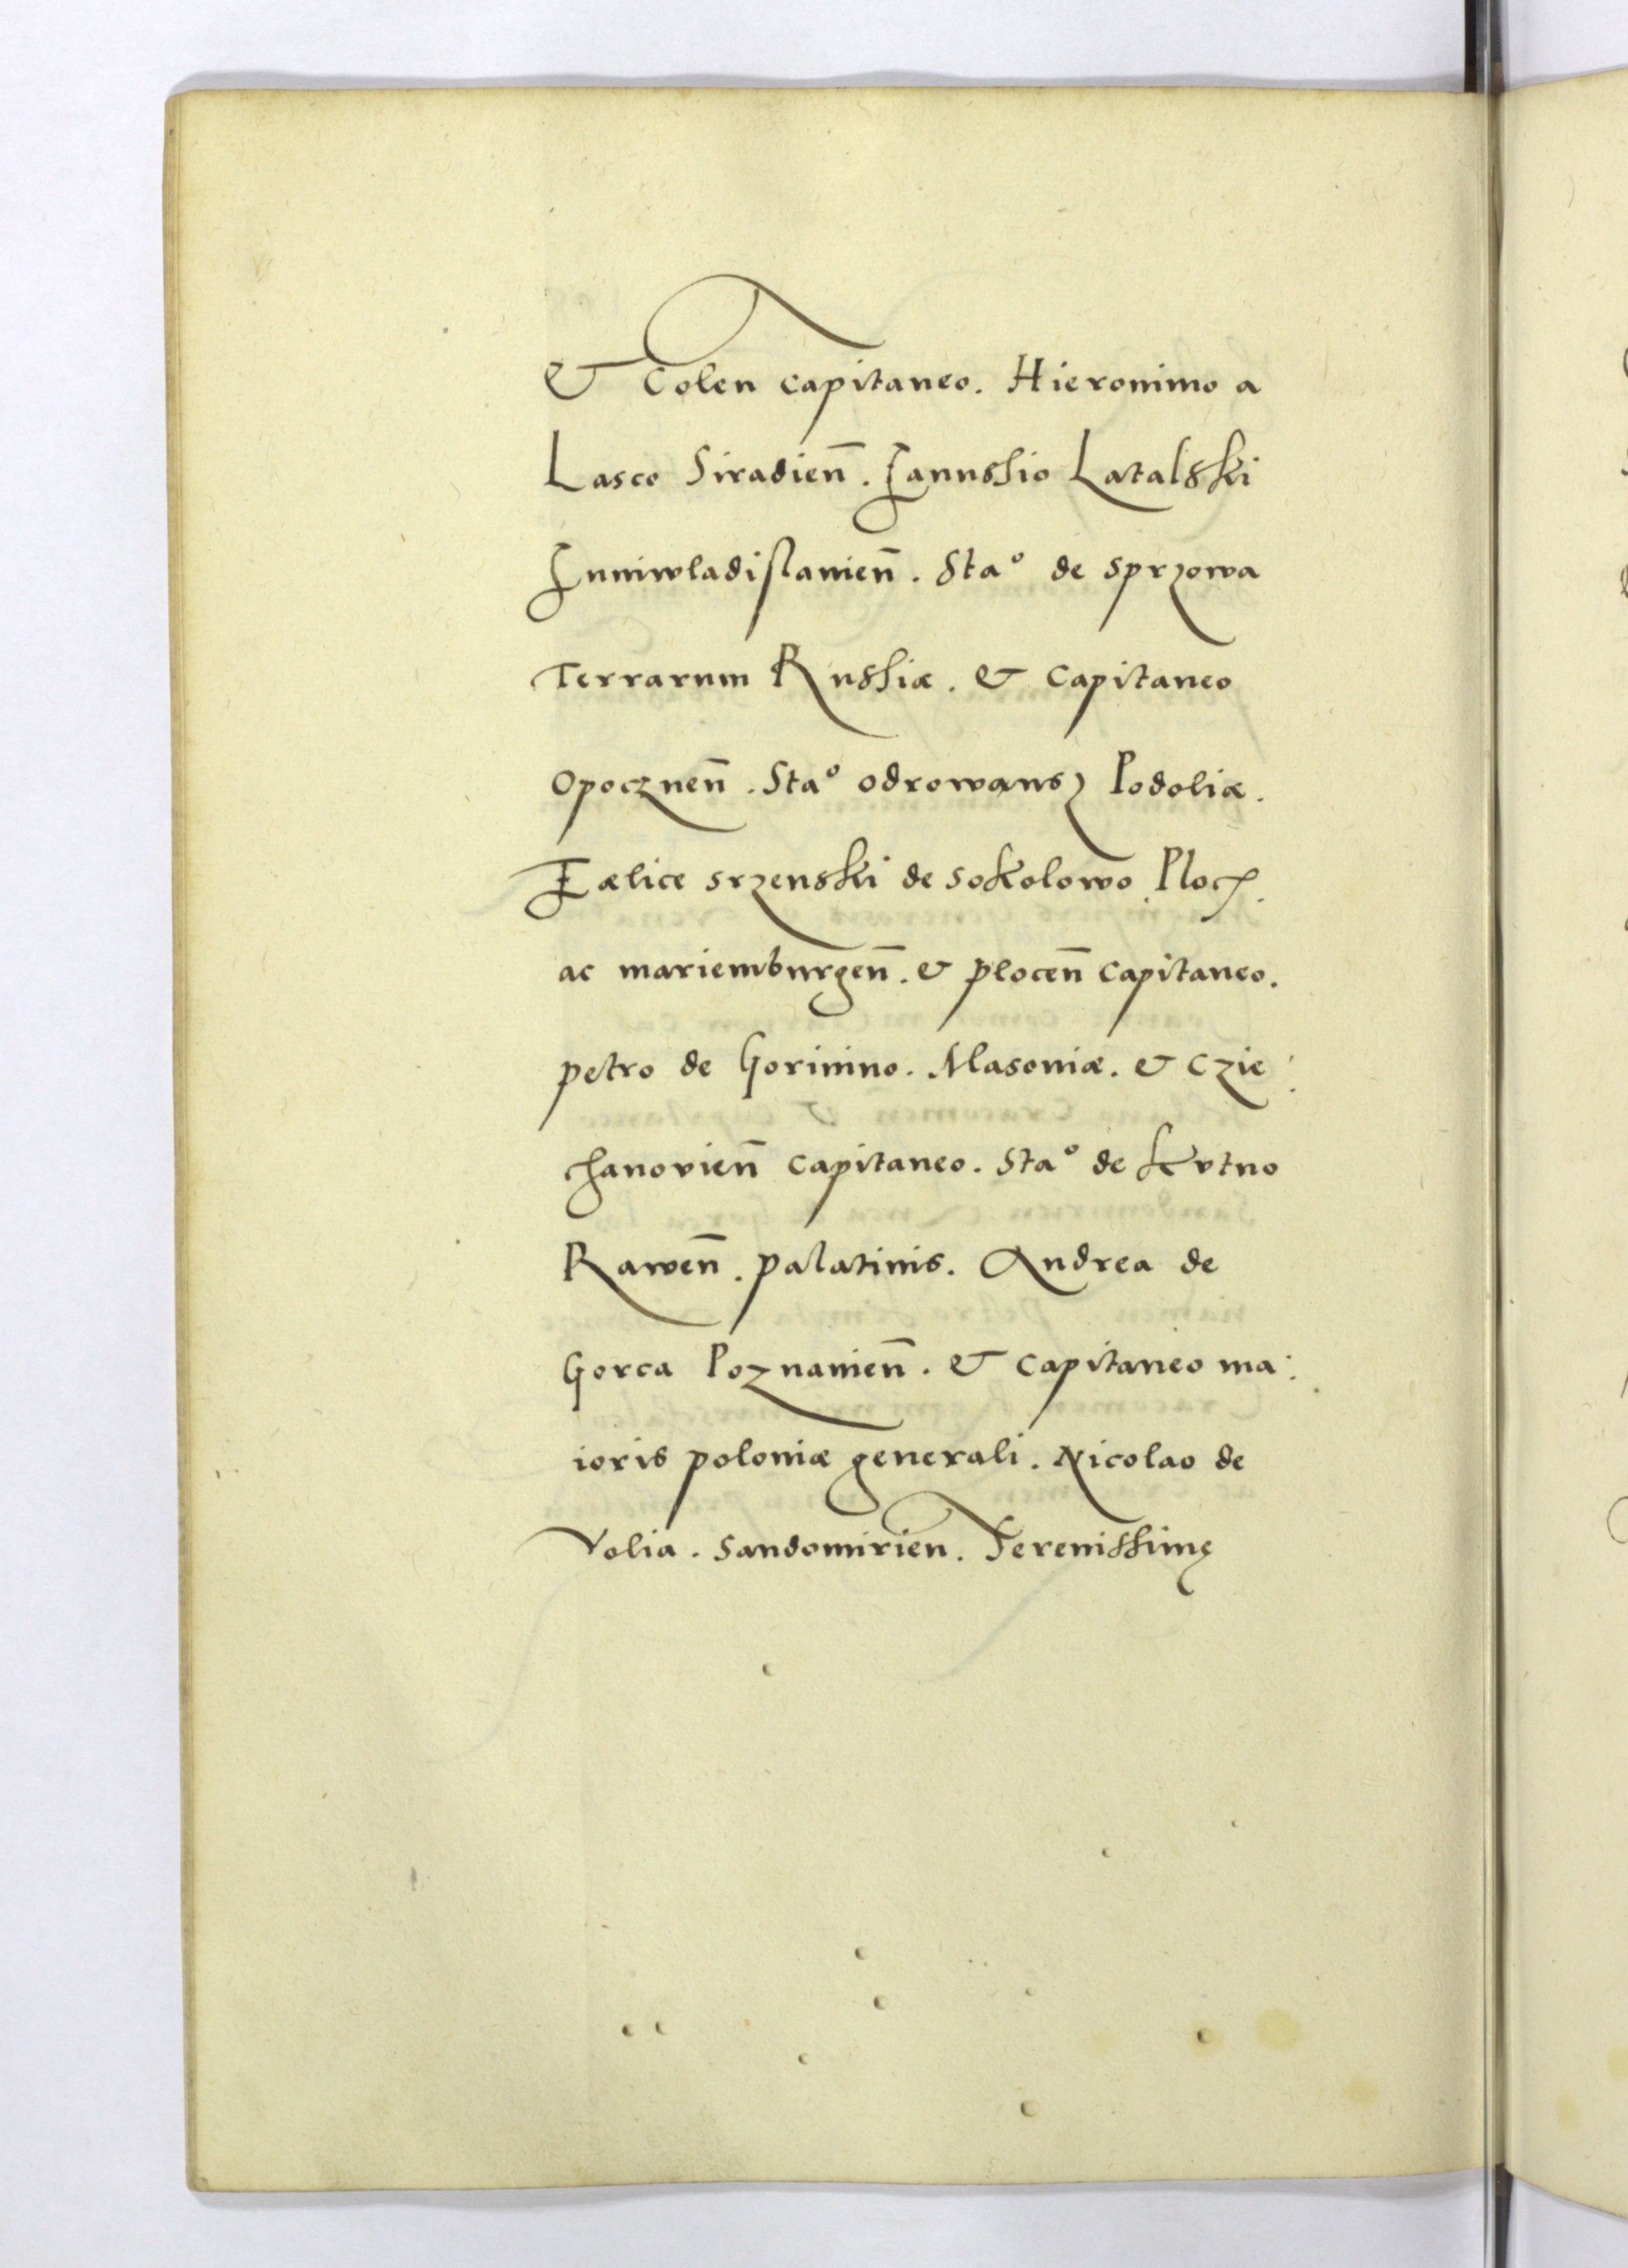 & Colen capitaneo. Hieronimo a
Lasco Siradien̄. Ianussio Latalski
Iuniwladislauien̄. Sta° de Sprzowa
Terrarum Russiæ. & Capitaneo
opocznen̄. Sta° odrowans Podoliæ.
Fælice srzenski de sokolowo Ploc̄.
ac mariemburgen̄. & plocen̄ Capitaneo.
petro de Gorinino. Masouiæ. & Czie:
chanovien̄ capitaneo. Sta° de Kvtno
Rawen̄. palatinis. Andrea de
Gorca Poznanien̄. & Capitaneo ma:
ioris poloniæ generali. Nicolao de
Volia. Sandomirien. Serenissimę